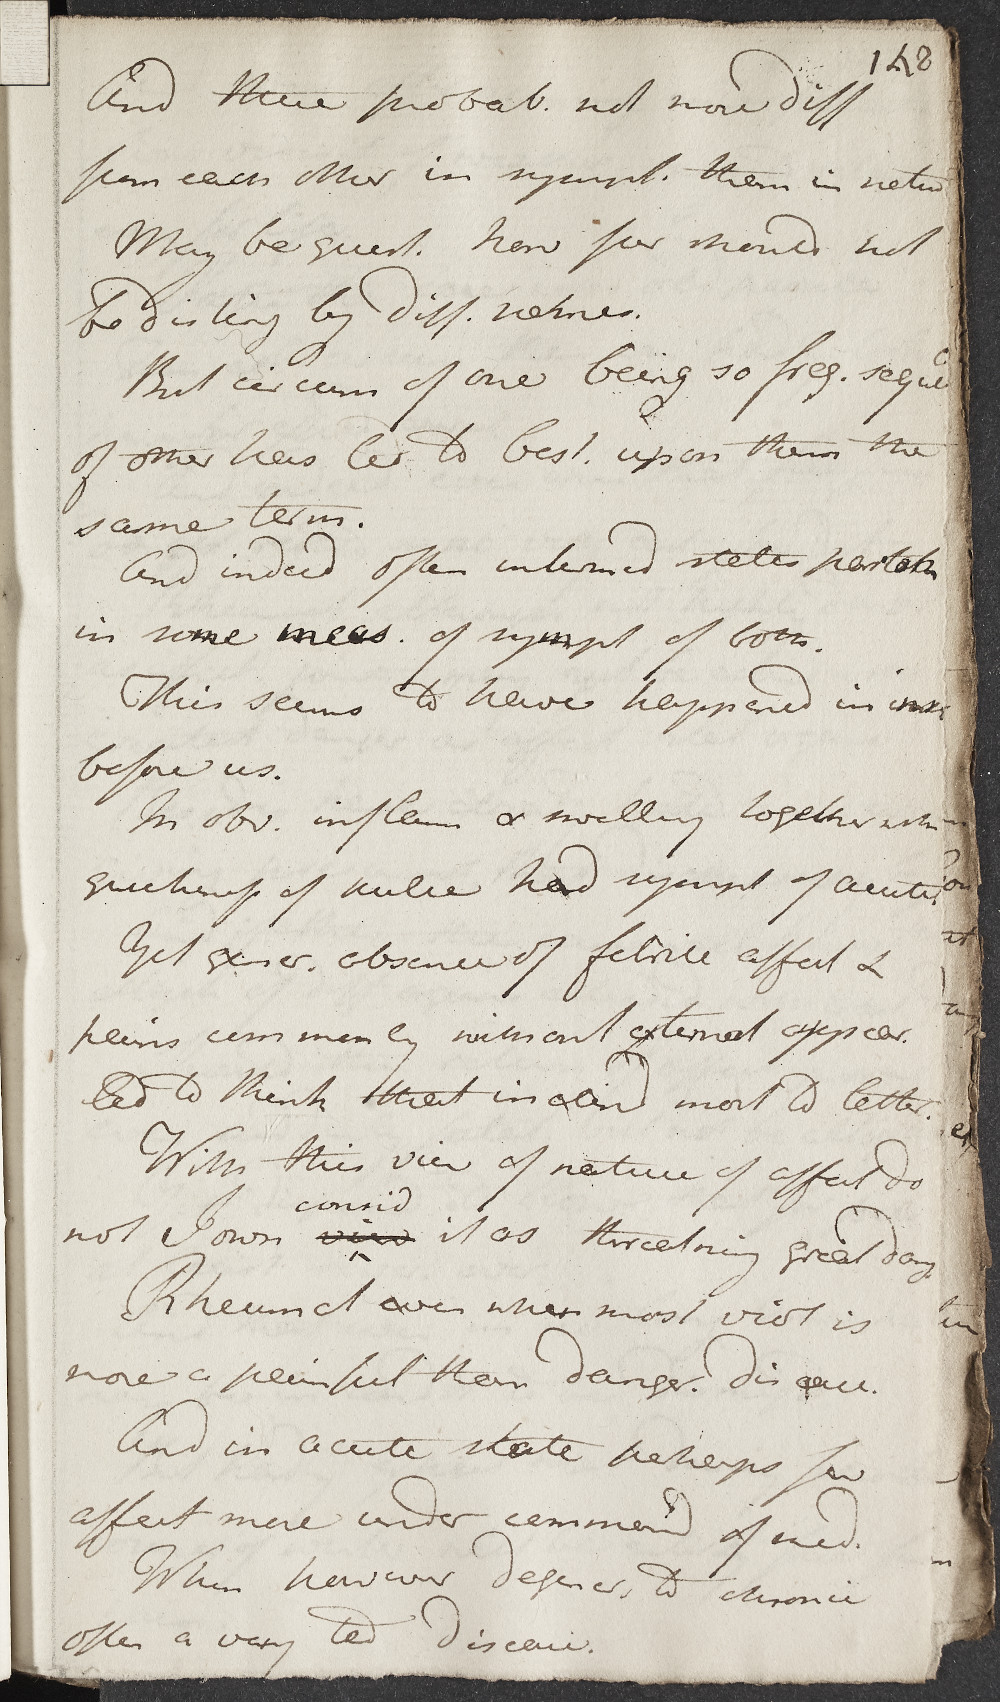 148
And there probab. not more diff
from each other in sympt. than in natu
May be quest. how far should not
be disting by diff. names.
But circum of one being so freq. seque
of other has led to best. upon them the
same term.
And indeed often intermed states partak
in some meas. of sympt of both.
This seems to have happened in
before us.
In obv. inflam & swelling together with
quickness of pulse had sympt of acute.
Yet gener. absence of febrile affect &
pains commonly without external appear.
Led to think that inclin'd most to latter.
With this view of nature of affect do
consid
not I own view it as threatning great dang
Rheumat even when most viol is
more a painful than danger. disease.
And in acute state perhaps few
affect more under command of med.
When however degener. to chronic
often a very ted disease.